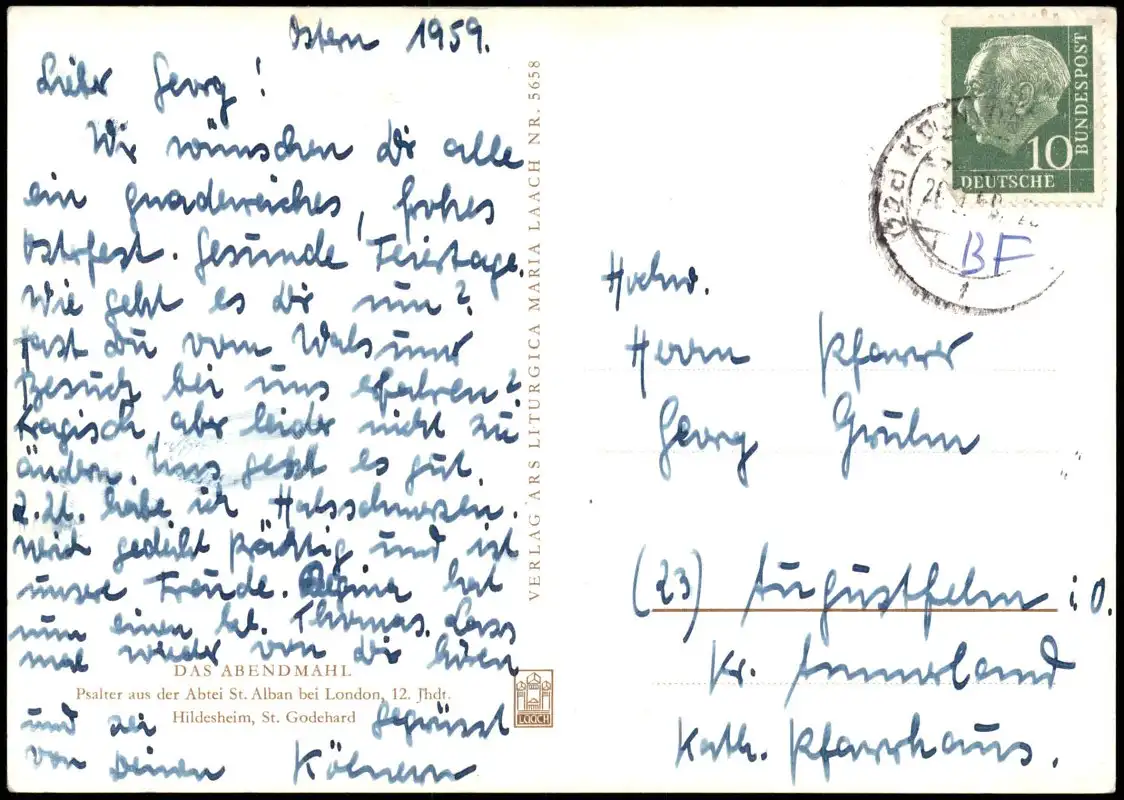 Ostern 1959.
Lieber Georg!
Wir wünschen Dir alle
ein gnadenreiches, frohes
Ostrfest. Gesunde Feiertage.
Wie geht es Dir nun?
Hast Du vom
Besuch bei uns erfahren?
Tragisch, aber leider nicht zu
ändern. Uns geht es gut.
z. Zt. habe ich Halsschmerzen.
gedeiht prächtig und ist
unsere Freude. Regina hat
nun einen kl. Thomas. Lass
mal wieder von Dir hören
und sei gegrüsst
von Deinen Kölnern
DAS ABENDMAHL
Psalter aus der Abtei St. Alban bei London, 12. Jhdt.
Hildesheim, St. Godehard
LAACH
VERLAG ARS LITURGICA MARIA LAACH NR. 5658
10
DEUTSCHE
BUNDESPOST
(22c) KÖLN
BF
Hochw.
Herrn Pfarrer
Georg Gruhn
(23) Augustfehn i. O.
Kr. Ammerland
Kath. Pfarrhaus.